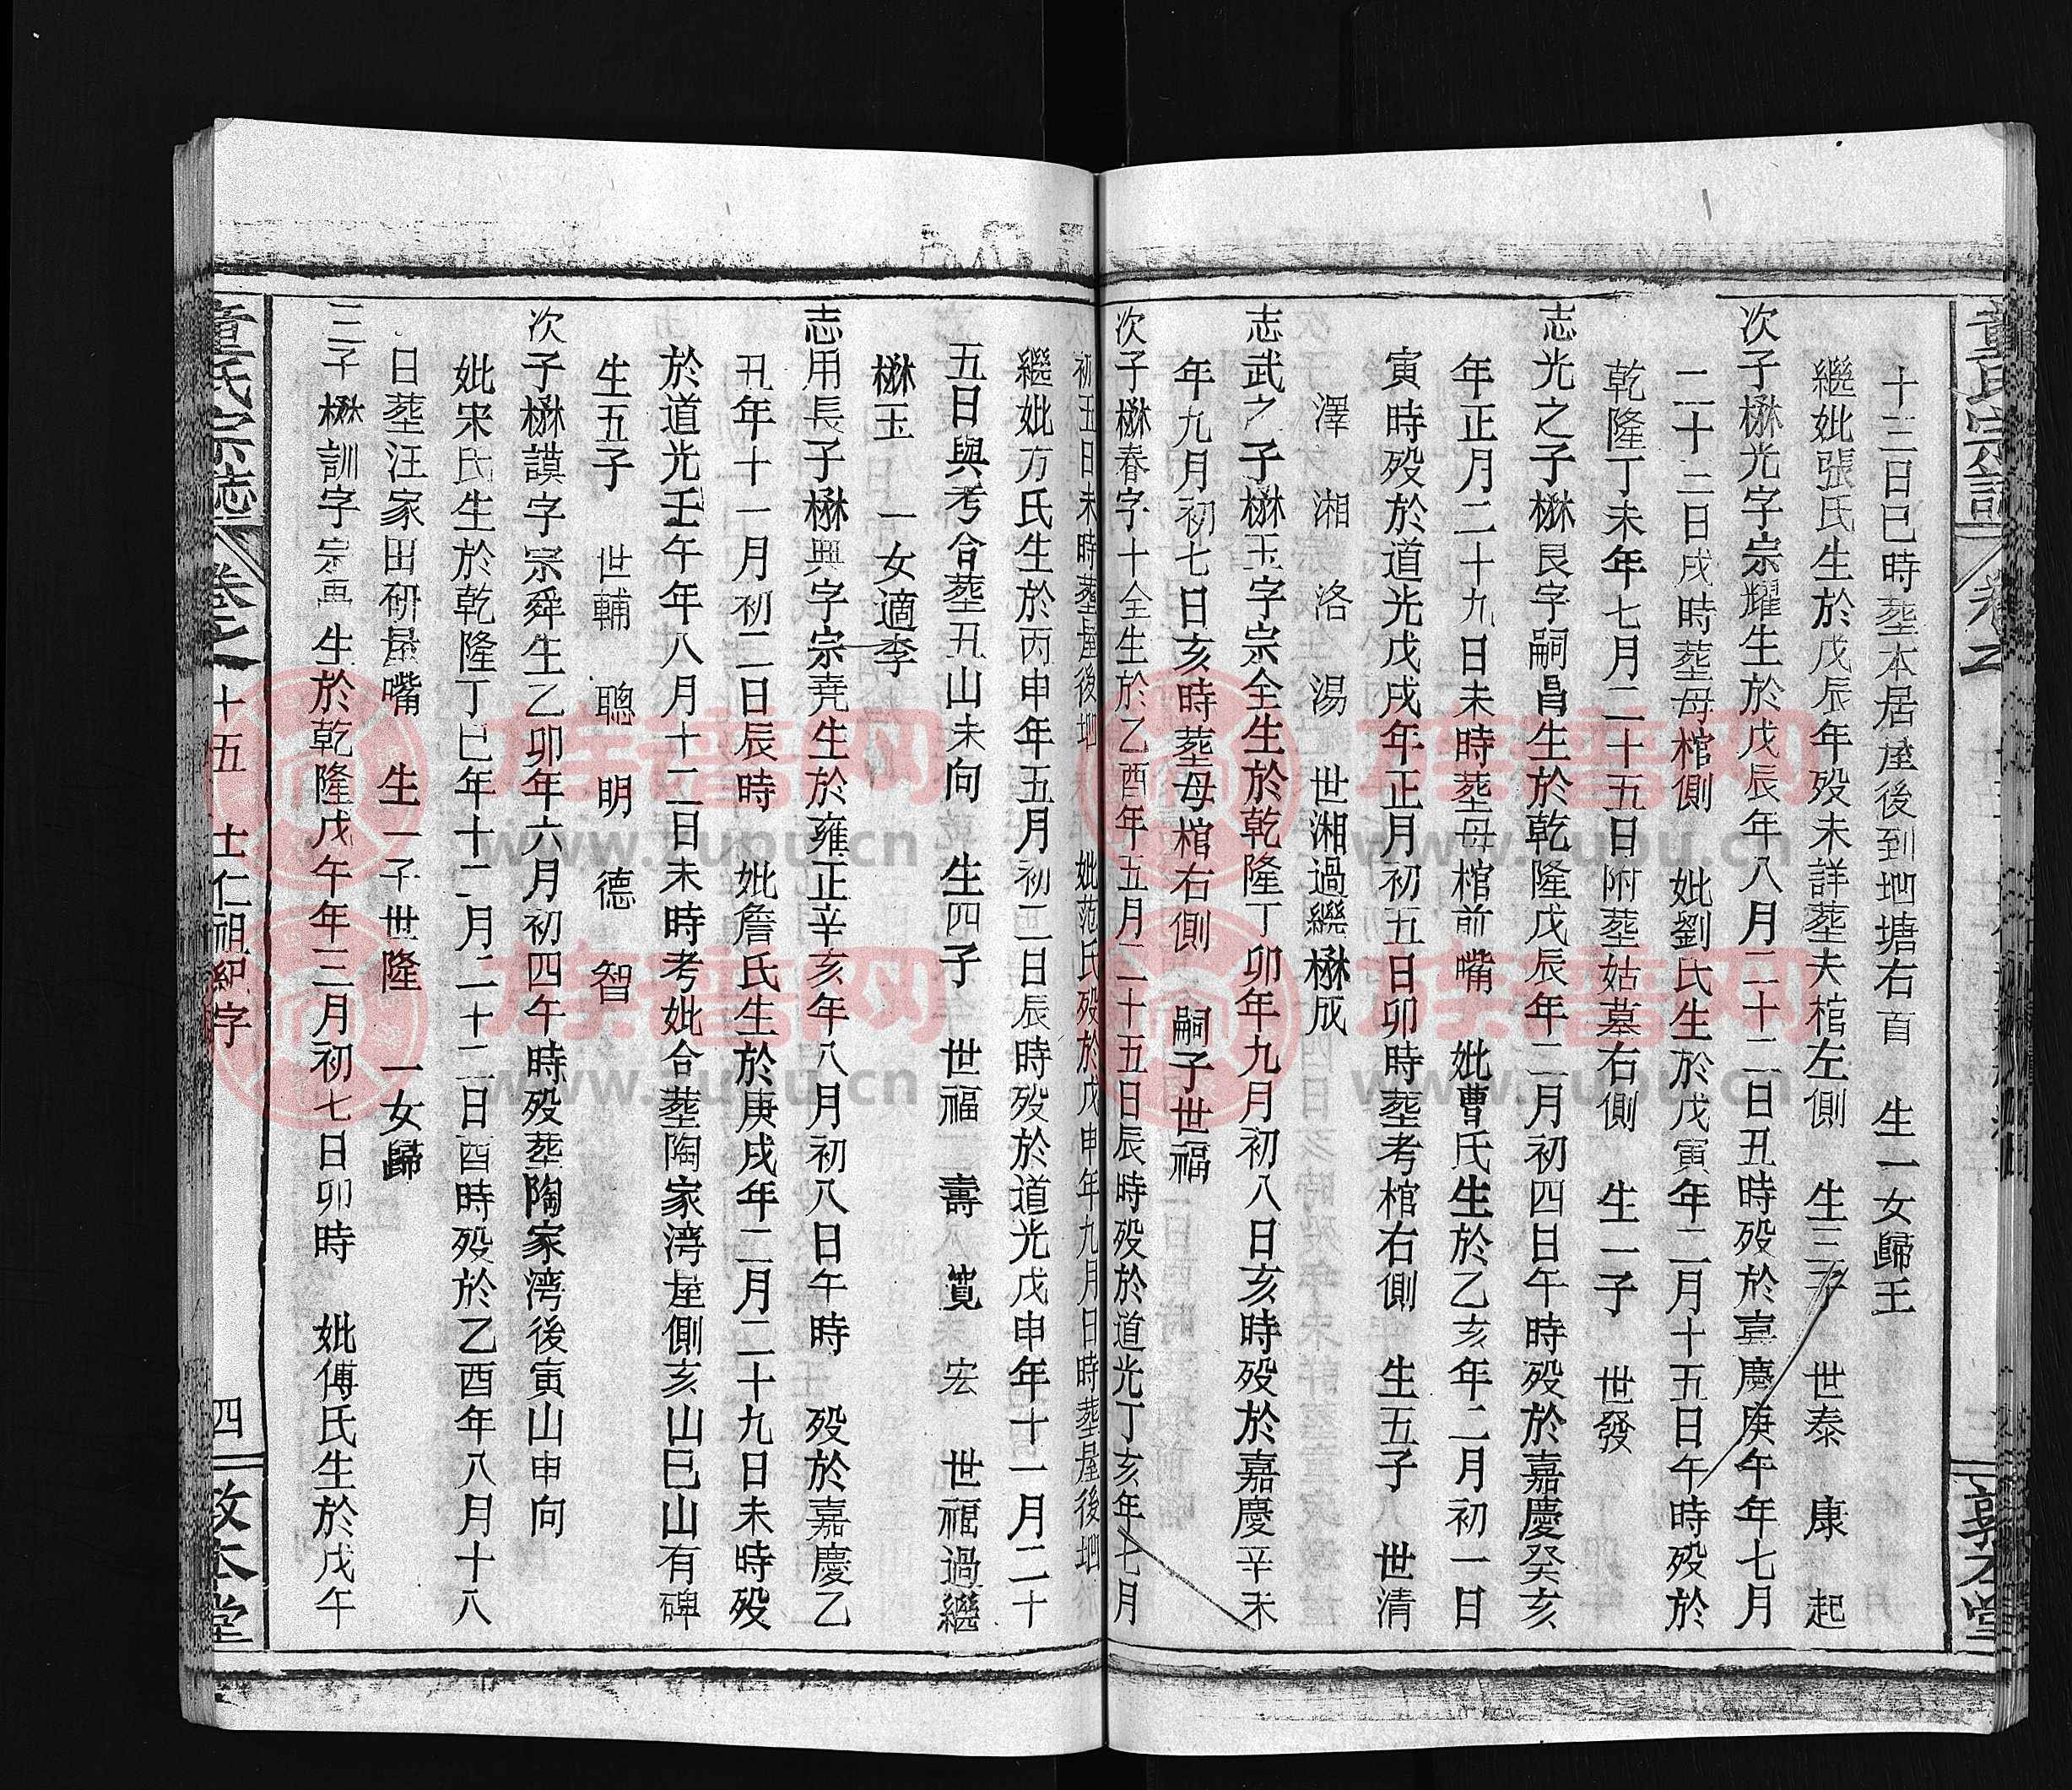 十三日巳時葬本居屋後到地塘右首 生一女歸王
繼妣張氏生於戊辰年歿未詳葬夫棺左側 生三子 世泰 康 起
次子楙光字宗耀生於戊辰年八月二十二日丑時歿於嘉慶庚午年七月
二十二日戌時葬母棺側 妣劉氏生於戊寅年二月十五日午時歿於
乾隆丁未年七月二十五日附葬姑墓右側 生一子 世發
志光之子楙良字嗣昌生於乾隆戊辰年二月初四日午時歿於嘉慶癸亥
年正月二十九日未時葬母棺前嘴 妣曹氏生於乙亥年二月初一日
寅時歿於道光戊戌年正月初五日卯時葬考棺右側 生五子 世清
澤 湘 洛 湯 世湘過繼楙成
志武之子楙玉字宗全生於乾隆丁卯年九月初八日亥時歿於嘉慶辛未
年九月初七日亥時葬母棺右側 嗣子世福
次子楙春字十全生於乙酉年五月二十五日辰時歿於道光丁亥年七月
初五日未時葬屋後 妣范氏歿於戊申年九月日時葬屋後
繼妣方氏生於丙申年五月初二日辰時歿於道光戊申年十一月二十
五日與考合葬丑山未向 生四子 世福 壽 寬 宏 世福過繼
楙玉 一女適李
志用長子楙興字宗堯生於雍正辛亥年八月初八日午時 歿於嘉慶乙
丑年十一月初二日辰時 妣詹氏生於庚戌年二月二十九日未時歿
於道光壬午年八月十二日未時考妣合葬陶家湾屋側亥山巳山有碑
生五子 世輔 聰 明 德 智
次子楙謨字宗舜生乙卯年六月初四午時歿葬陶家湾後寅山申向
妣宋氏生於乾隆丁巳年十二月二十二日酉時歿於乙酉年八月十八
日葬汪家田研屋嘴 生一子世隆 一女歸
三子楙訓字宗禹生於乾隆戊午年三月初七日卯時 妣傅氏生於戊午
童氏宗誌 卷之 十五 士仁祖紀字 四 敦本堂
族譜网
www.zupu.cn